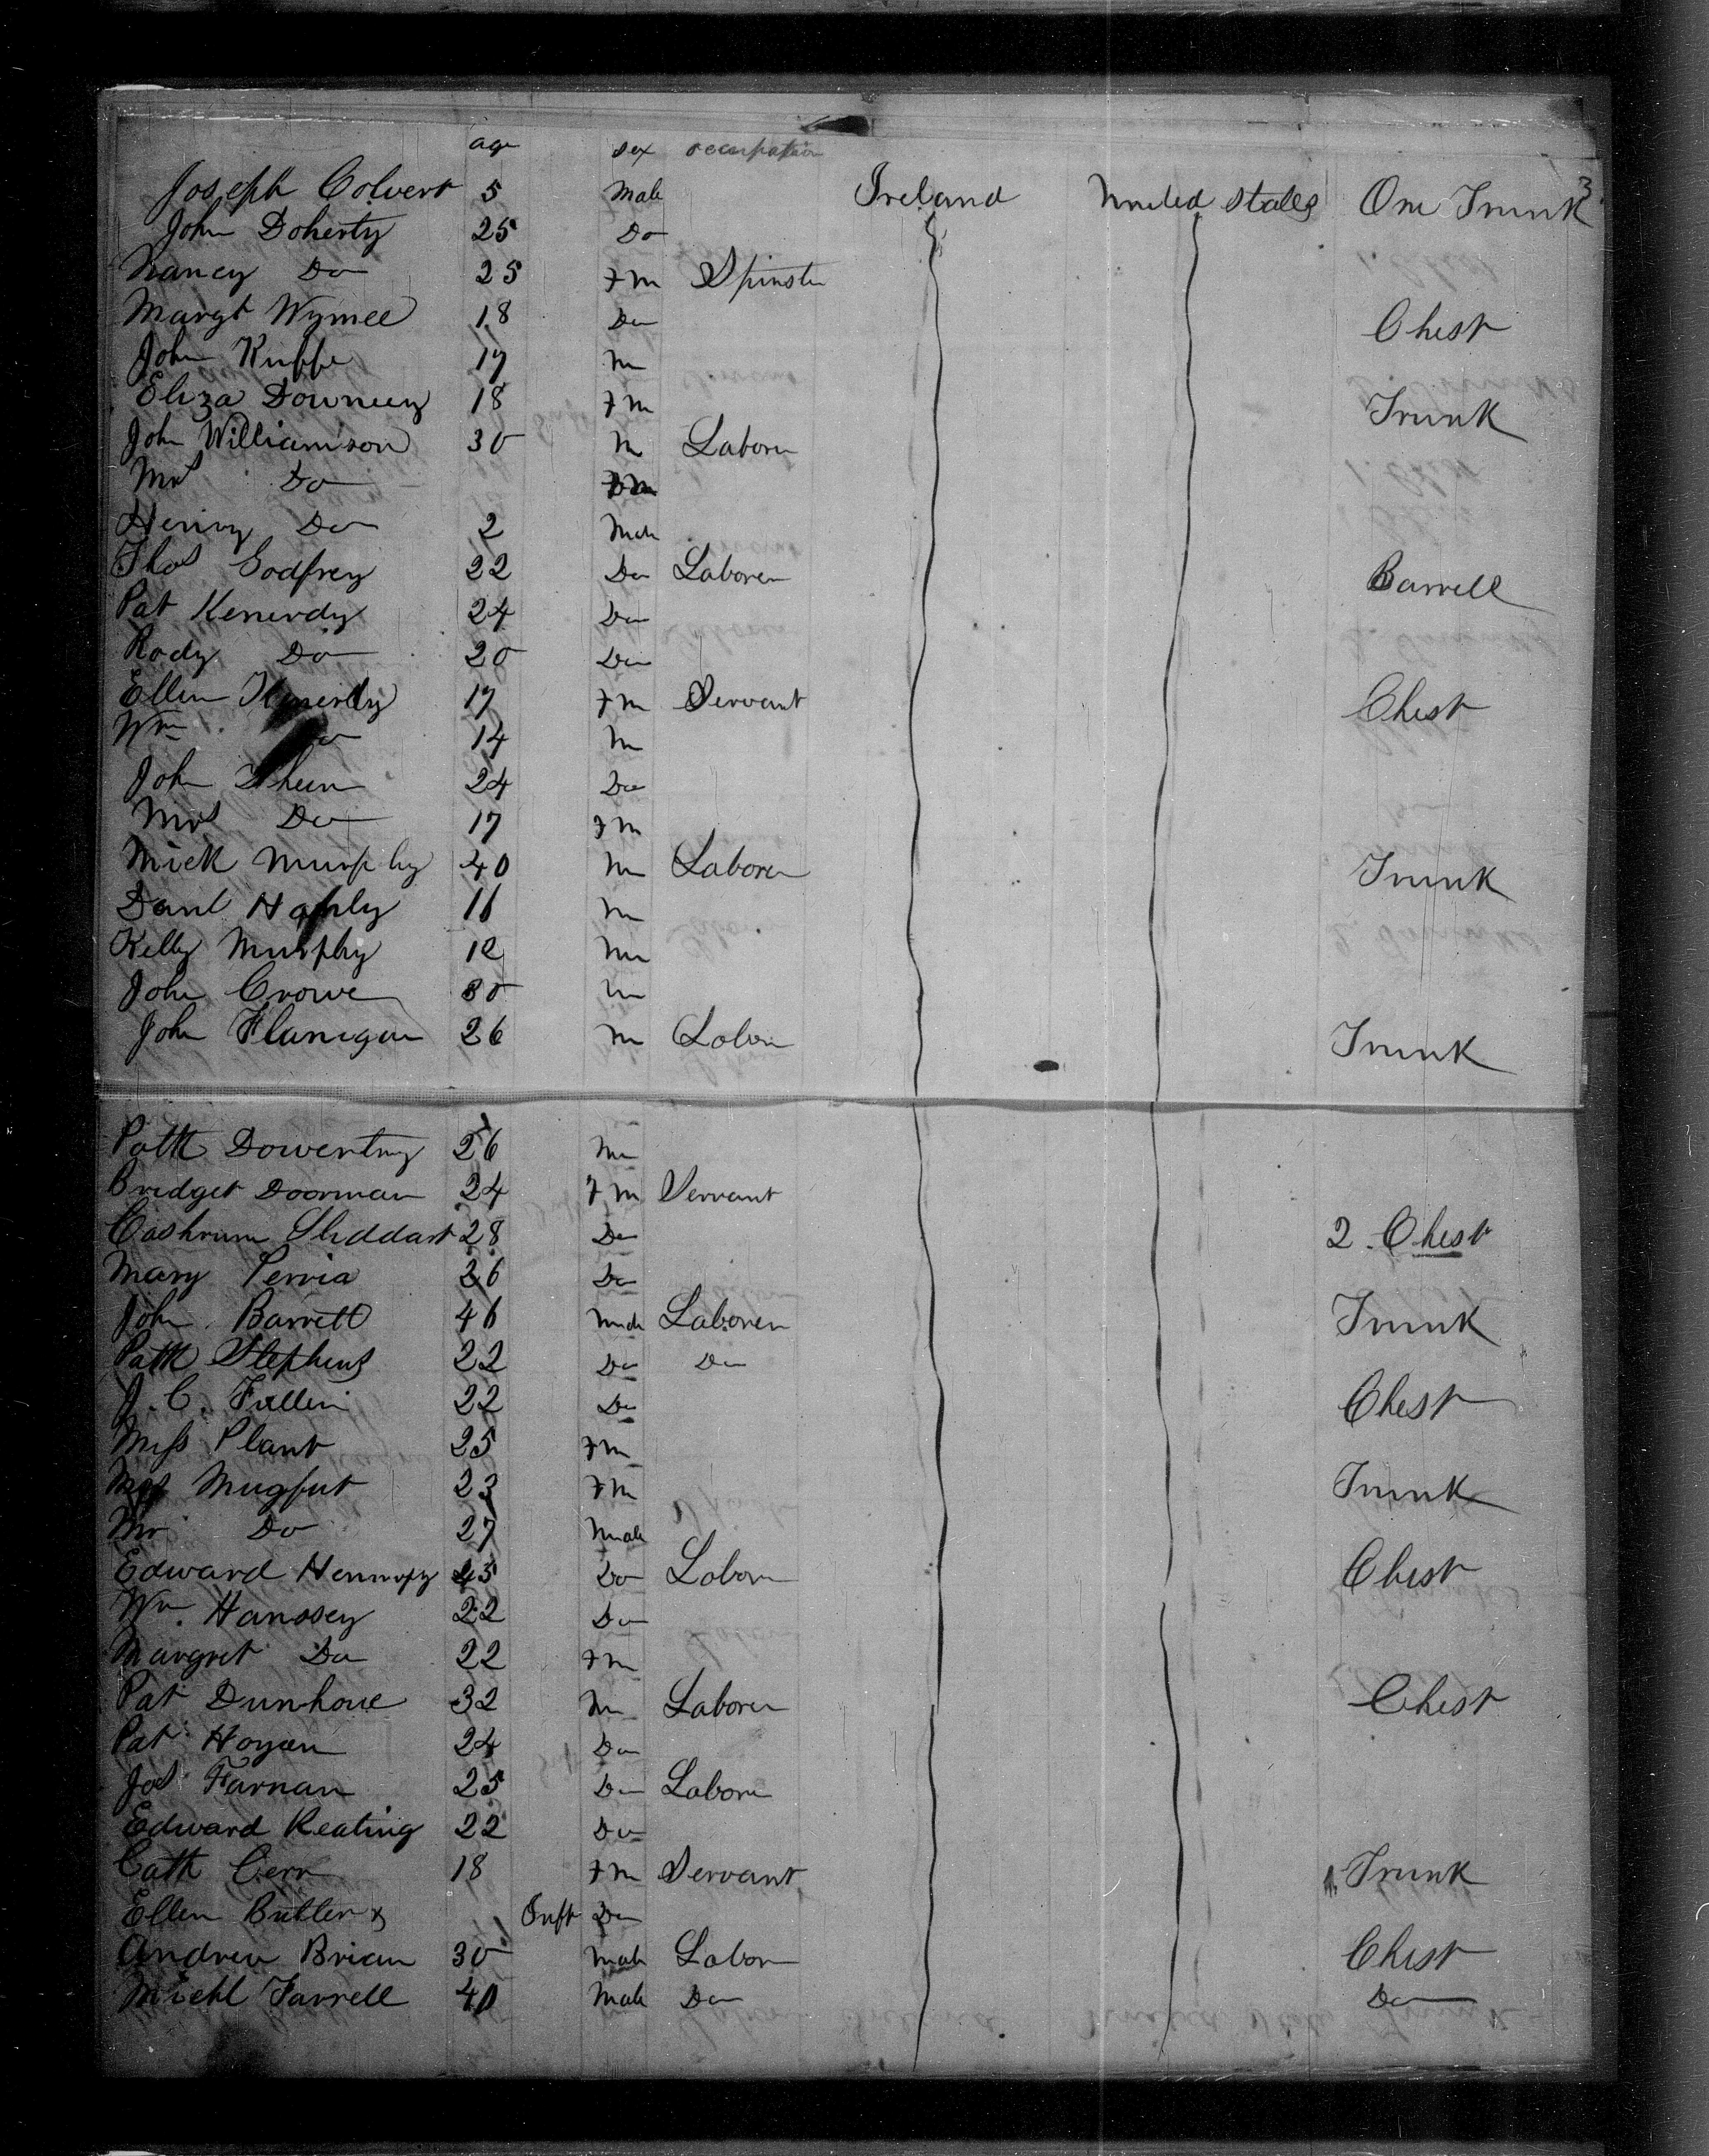 age sex occupation
3
Joseph Colvert 5 Male Ireland United States One Trunk
John Doherty 25 Do
Nancy Do 25 Fm Spinster
Margt Wymee 18 Do Chest
John Kuppe 17 m
Eliza Downey 18 Fm Trunk
John Williamson 30 M Laborer
Mrs Do Fm
Henry Do 2 Male
Thos Godfrey 22 Do Laborer Barrell
Pat Kenerdy 24 Do
Rody Do 20 Do
Ellen Kenerdy 17 Fm Servant Chest
Wm Do 14 m
John Sheen 24 Do
Mrs Do 17 Fm
Mick Murphy 40 m Laborer Trunk
Danl 11 m
Kelly Murphy 12 m
John Crowe 30 m
John Flanigan 26 m Labor Trunk
Patk Dowentry 26 m
Bridget Doorman 24 Fm Servant
28 Do 2 Chest
Mary 26 Do
John Barrett 46 male Laborer Trunk
Patk Stephens 22 Do Do
J. C. Fullen 22 Do Chest
Miss Plant 25 Fm
Mugfut 23 Fm Trunk
Mr Do 27 male
Edward 45 Do Labor Chest
Wm. Hanssey 22 Do
Margret Do 22 Fm
Pat Dunhoue 32 m Laborer Chest
Pat Hogan 24 Do
Jos Farnan 25 Do Labor
Edward Keating 22 Do
Cath Cerr 18 Fm Servant 1. Trunk
Ellen Butler x Inft Do
Andrew Brian 30 male Labor Chest
Michl Farrell 40 Male Do Do